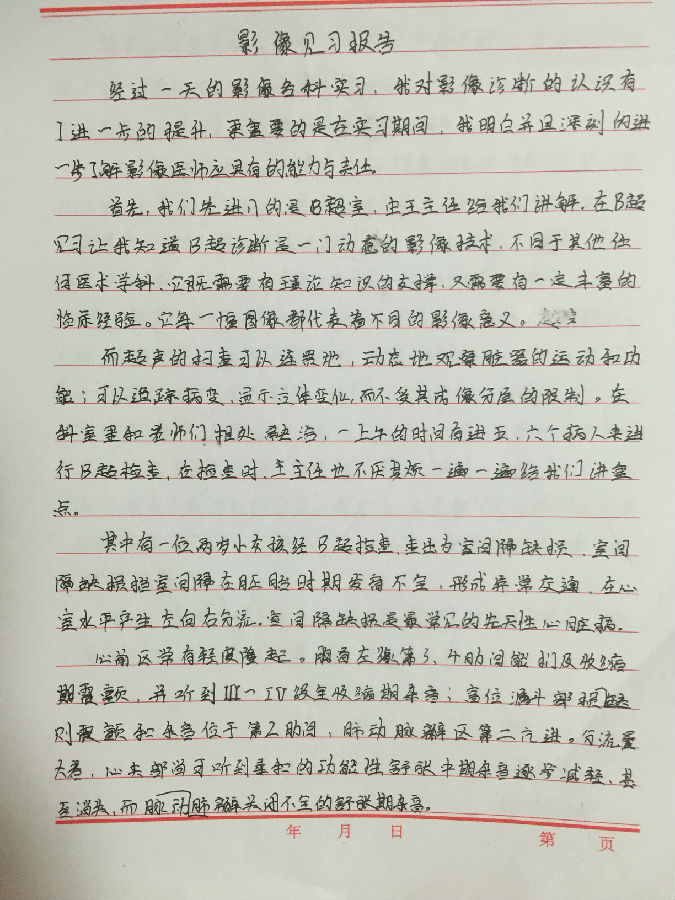 影像见习报告
经过一天的影像各科实习，我对影像诊断的认识有
了进一步的提升，更重要的是在实习期间，我明白并且深刻的进
一步了解影像医师应具有的能力与责任。
首先，我们先进入的是B超室，由王主任给我们讲解，在B超
见习让我知道B超诊断是一门动态的影像技术，不同于其他任
何医术学科，它既需要有理论知识的支撑，又需要有一定丰富的
临床经验。它每一幅图像都代表着不同的影像意义。
而超声的扫查可以连贯地，动态地观察脏器的运动和功
能；可以追踪病变，显示立体变化，而不受其成像分层的限制。在
科室里和老师们相处融洽，一上午的时间有进五、六个病人来进
行B超检查，在检查时，王主任也不厌其烦一遍一遍给我们讲重
点。
其中有一位两岁小女孩经B超检查，查出为室间隔缺损，室间
隔缺损指室间隔在胚胎时期发育不全，形成异常交通，在心
室水平产生左向右分流，室间隔缺损是最常见的先天性心脏病。
心前区常有轻度隆起。胸骨左缘第3、4肋间能扪及收缩
期震颤，并听到III-IV级全收缩期杂音；高位漏斗部缺
则震颤和杂音位于第2肋间，肺动脉瓣区第二亢进。分流量
大者，心尖部尚可听到柔和的功能性舒张中期杂音逐步减轻、甚
至消失，而肺动脉瓣关闭不全的舒张期杂音。
年 月 日 第 页